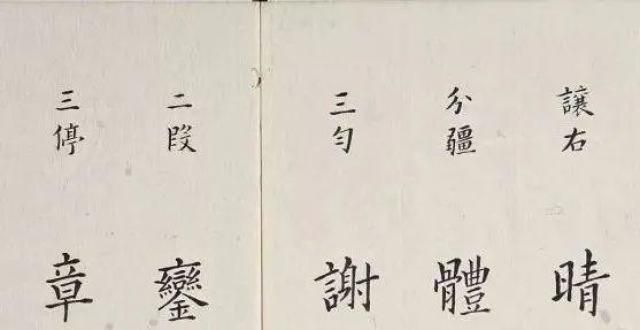 讓右
晴
分疆
體
三勻
謝
二段
鑾
三停
章